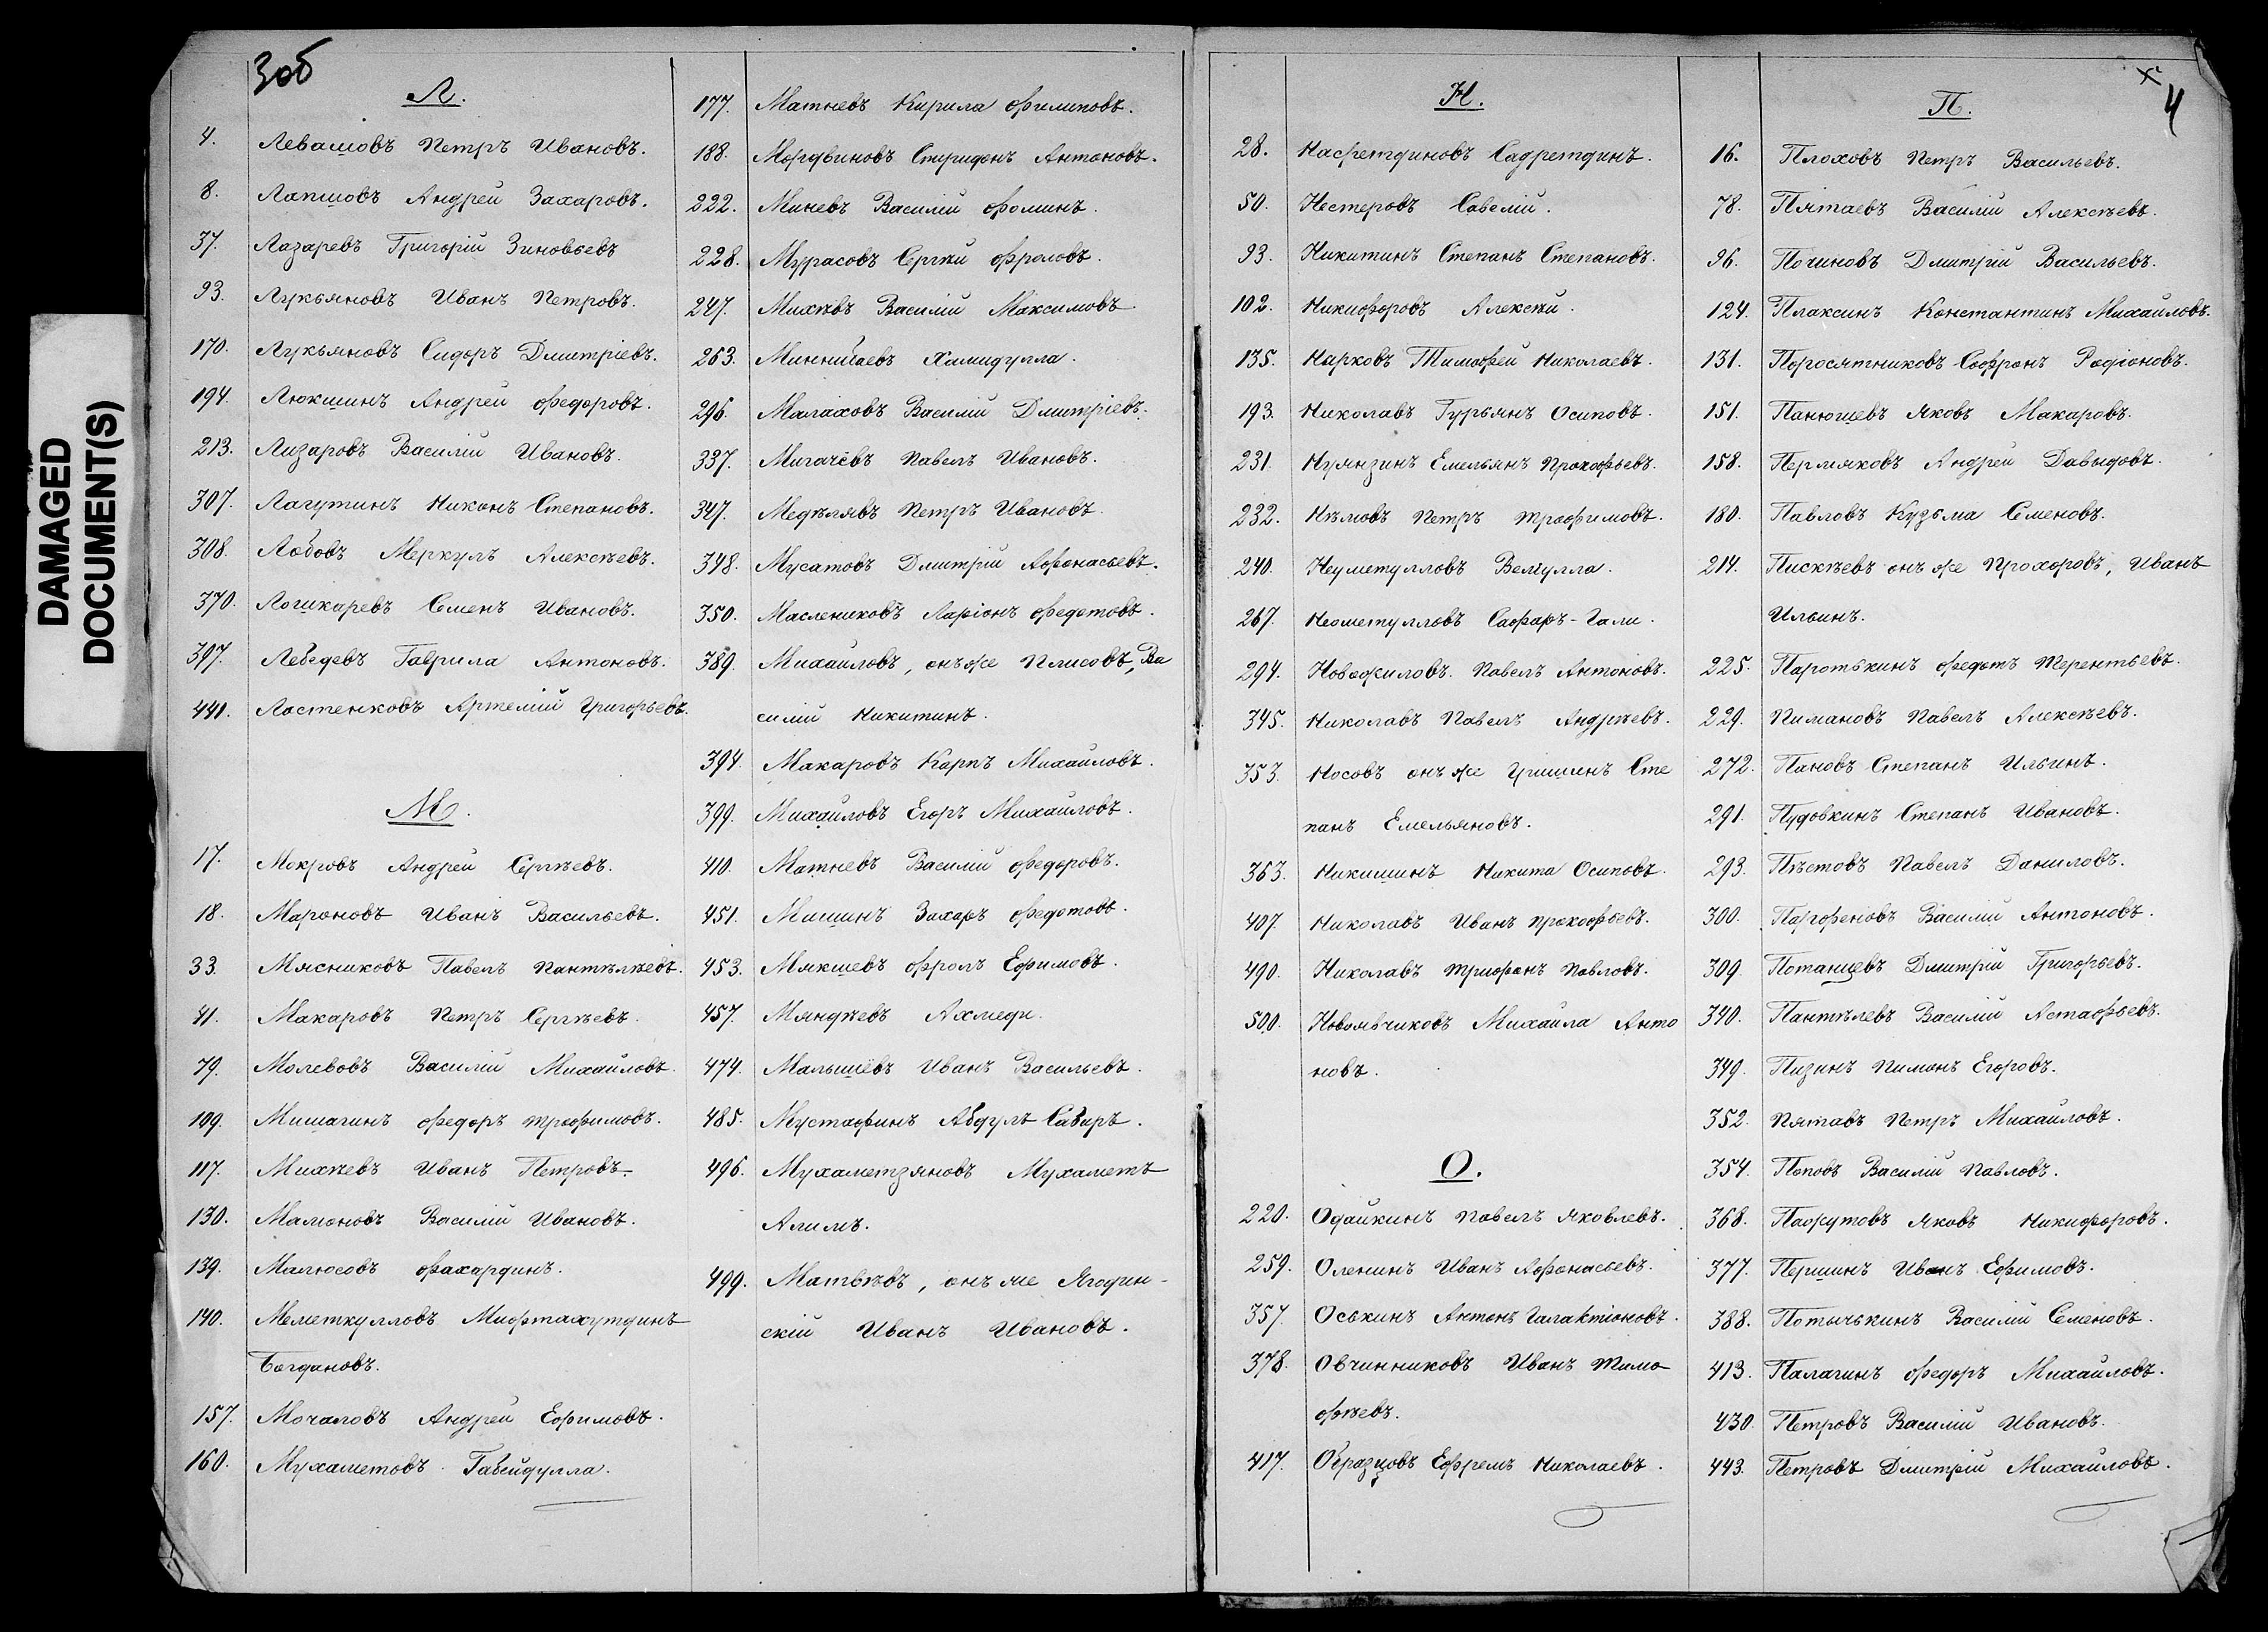 DAMAGED
DOCUMENT(S)
3об
Л.
4. Левашовъ Петръ Ивановъ.
8. Лапшовъ Андрей Захаровъ.
37. Лазаревъ Григорій Зиновьевъ
93. Лукьяновъ Иванъ Петровъ.
170. Лукьяновъ Сидоръ Дмитріевъ.
194. Люкшинъ Андрей Федоровъ.
213. Лизаровъ Василій Ивановъ.
307. Лагутинъ Никонъ Степановъ.
308. Лобовъ Меркулъ Алексѣевъ.
370. Логикаревъ Семенъ Ивановъ.
397. Лебедевъ Гаврила Антоновъ.
441. Ластенковъ Артемій Григорьевъ.
М.
17. Мокровъ Андрей Сергѣевъ.
18. Мароновъ Иванъ Васильевъ.
33. Мясниковъ Павелъ Пантѣлѣевъ.
41. Макаровъ Петръ Сергѣевъ.
79. Молевовъ Василій Михайловъ.
109. Мишагинъ Федоръ Трофимовъ.
117. Михѣевъ Иванъ Петровъ.
130. Мамоновъ Василій Ивановъ.
139. Малюсовъ Фахардинъ.
140. Меметкулловъ Мифтахутдинъ
Богдановъ.
157. Мочаловъ Андрей Ефимовъ.
160. Мухаметовъ Габейдулла.
177. Матневъ Кирила Филиповъ.
188. Мордвиновъ Спиридонъ Антоновъ.
222. Миневъ Василій Фоминъ.
228. Мурасовъ Сергѣй Фроловъ.
247. Михѣвъ Василій Максимовъ
263. Миннибаевъ Хамидулла.
296. Малаховъ Василій Дмитріевъ.
337. Мигачёвъ Павелъ Ивановъ.
347. Медѣлявъ Петръ Ивановъ.
348. Мусатовъ Дмитрій Афонасьевъ.
350. Маслениковъ Ларіонъ Федотовъ.
389. Михайловъ, онъ же Плисовъ, Ва
силій Никитинъ.
394. Макаровъ Карпъ Михайловъ.
399. Михайловъ Егоръ Михайловъ.
410. Матневъ Василій Федоровъ.
451. Мишинъ Захаръ Федотовъ.
453. Мякшевъ Фролъ Ефимовъ.
457. Мяндѣевъ Ахмеди.
474. Малышёвъ Иванъ Васильевъ.
485. Мустафинъ Абдулъ Сабиръ.
496. Мухаметзяновъ Мухаметъ
Алимъ.
499. Матвѣвъ, онъ же Ягодин-
скій Иванъ Ивановъ.
Н.
28. Насретдиновъ Садретдинъ.
50. Нестеровъ Савелій.
93. Никитинъ Степанъ Степановъ.
102. Никифоровъ Алексѣй.
135. Нарковъ Тимофей Николаевъ.
193. Николавъ Гурьянъ Осиповъ.
231. Нуянзинъ Емельянъ Прокофьевъ.
232. Нѣмовъ Петръ Трофимовъ.
240. Неуметулловъ Велиулла.
267. Неометулловъ Сафаръ-Гали.
294. Новожиловъ. Павелъ Антоновъ.
345. Николавъ Павелъ Андрѣевъ.
353. Носовъ онъ же Гришинъ Сте
панъ Емельяновъ.
363. Никишинъ Никита Осиповъ.
407. Николавъ Иванъ Прокофьевъ.
490. Николавъ Трифонъ Павловъ.
500. Новоявчиковъ Михаила Анто
новъ.
О.
220. Одайкинъ Павелъ Яковлевъ.
259. Оленинъ Иванъ Афонасьевъ.
357. Оськинъ Антонъ Галактіоновъ.
378. Овчинниковъ Иванъ Тимо
фѣевъ.
417. Образцовъ Ефремъ Николаевъ.
4
П.
16. Плоховъ Петръ Васильевъ.
78. Пятаевъ Василій Алексѣевъ.
96. Починовъ Дмитрій Васильевъ.
124. Плаксинъ Константинъ Михайловъ.
131. Поросятниковъ Софронъ Родіоновъ.
151. Панюшевъ Яковъ Макаровъ.
158. Пермяковъ Андрей Давыдовъ.
180. Павловъ Кузьма Семеновъ.
214. Пискѣевъ онъ же Прохоровъ, Иванъ
Ильинъ.
225. Паротькинъ Федотъ Терентьевъ.
229. Пимановъ Павелъ Алексѣевъ.
272. Пановъ Степанъ Ильинъ.
291. Пудовкинъ Степанъ Ивановъ.
293. Пѣстовъ Павелъ Даниловъ.
300. Парфеновъ Василій Антоновъ.
309. Потанцевъ Дмитрій Григорьевъ.
340. Пантѣлевъ Василій Астафьевъ.
349. Пизинъ Пимонъ Егоровъ.
352. Пятавъ Петръ Михайловъ.
354. Поповъ Василій Павловъ.
368. Пафкутовъ Яковъ Никифоровъ.
377. Першинъ Иванъ Ефимовъ.
388. Потычькинъ Василій Семеновъ.
413. Палагинъ Федоръ Михайловъ.
430. Петровъ Василій Ивановъ.
443. Петровъ Дмитрій Михайловъ.